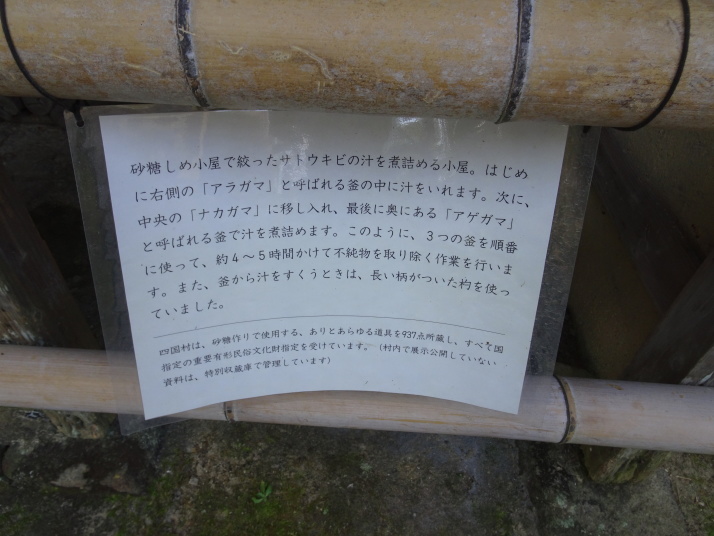 砂糖しめ小屋で絞ったサトウキビの汁を煮詰める小屋。はじめ
に右側の「アラガマ」と呼ばれる釜の中に汁をいれます。次に、
中央の「ナカガマ」に移し入れ、最後に奥にある「アゲガマ」
と呼ばれる釜で汁を煮詰めます。このように、３つの釜を順番
に使って、約４～５時間かけて不純物を取り除く作業を行いま
す。また、釜から汁をすくうときは、長い柄がついた杓を使っ
ていました。
四国村は、砂糖作りで使用する、ありとあらゆる道具を937点所蔵し、すべて国
指定の重要有形民俗文化財指定を受けています。（村内で展示公開していない
資料は、特別収蔵庫で管理しています）